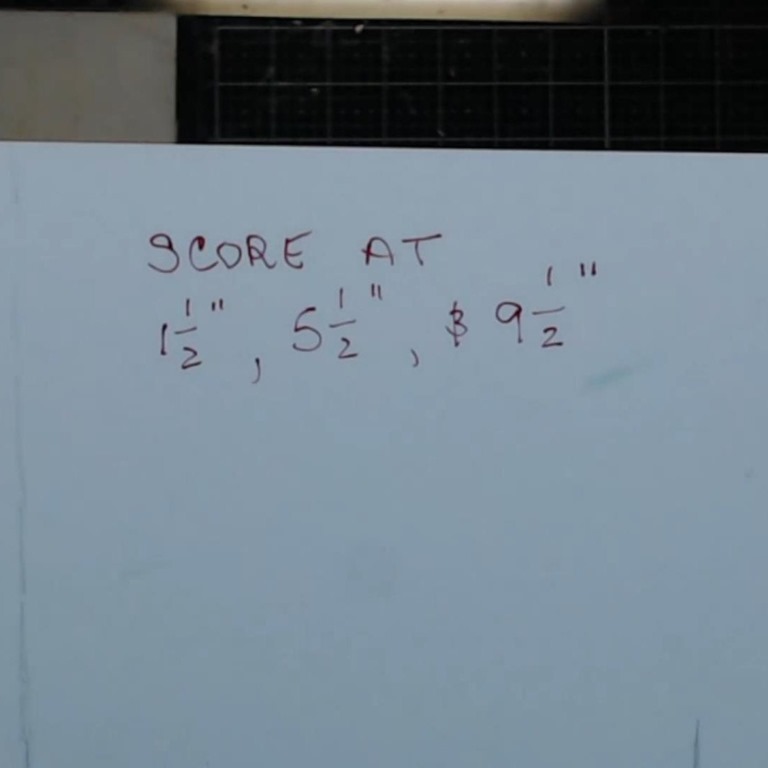 SCORE AT
1 1/2", 5 1/2", & 9 1/2"